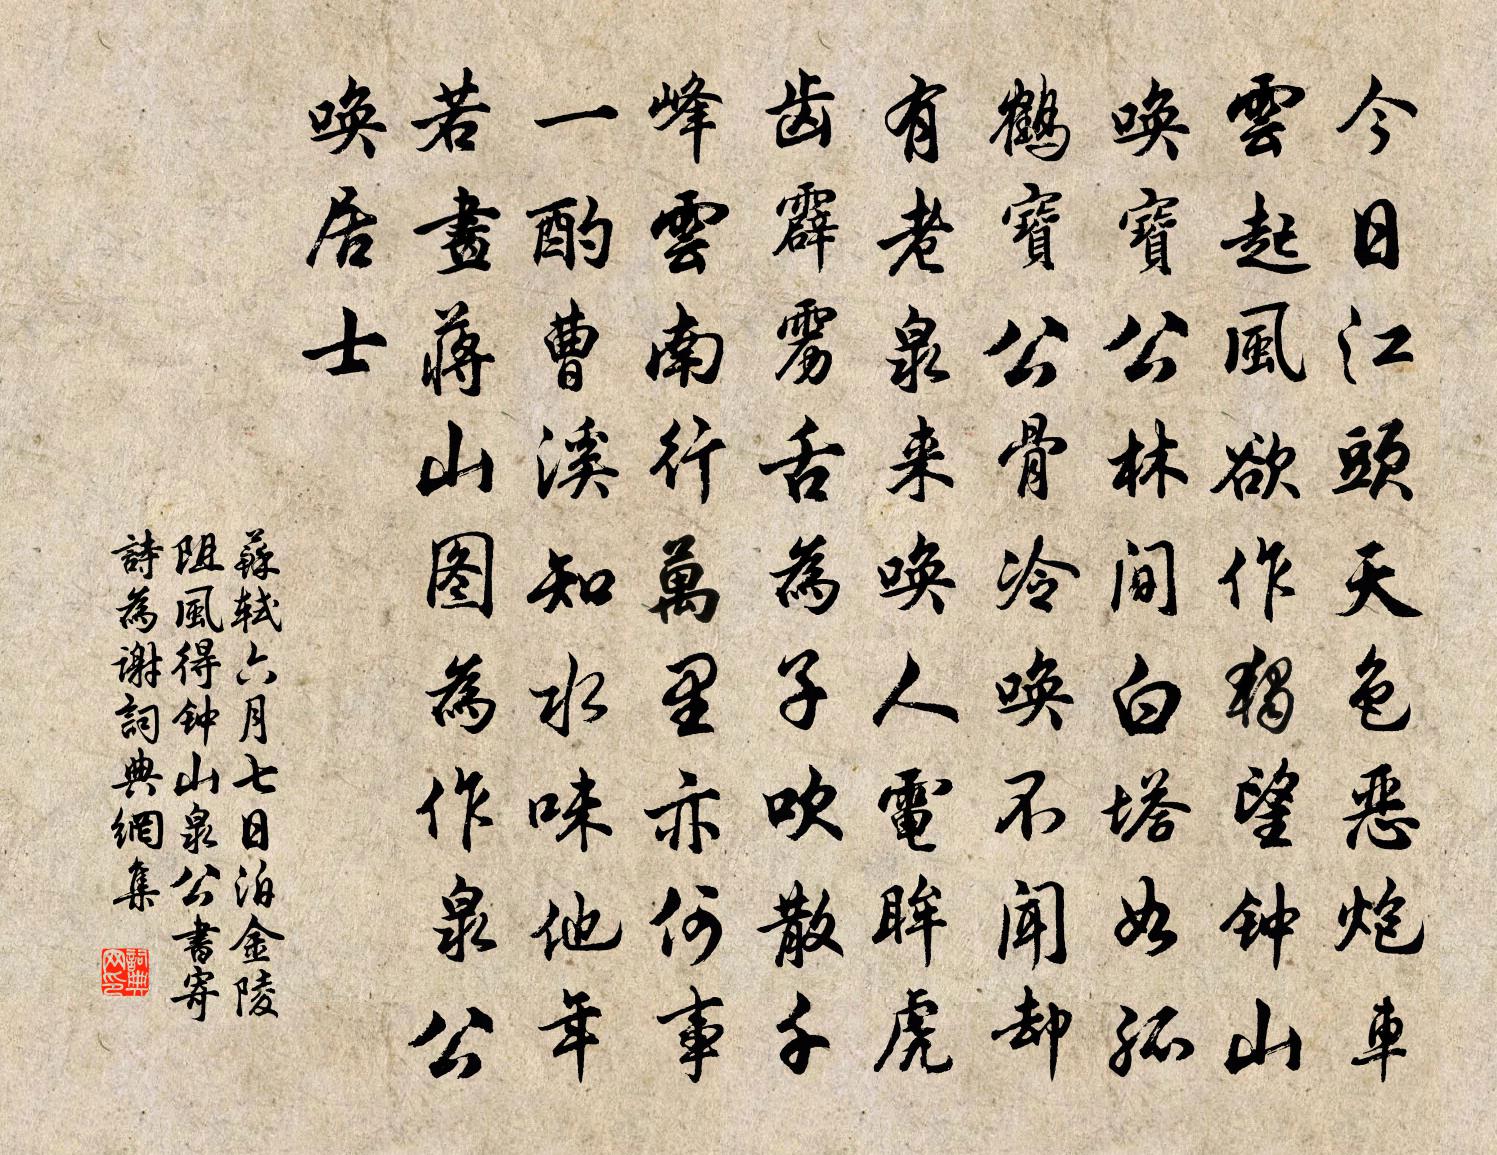 今日江頭天色恶炮車
雲起風欲作獨望钟山
唤寶公林间白塔如孤
鶴寶公骨冷唤不闻却
有老泉来唤人電眸虎
齿霹雳舌為子吹散千
峰雲南行萬里亦何事
一酌曹溪知水味他年
若畫蒋山图為作泉公
唤居士
蘇軾六月七日泊金陵
阻風得钟山泉公書寄
詩為谢詞典網集
詞典
网印